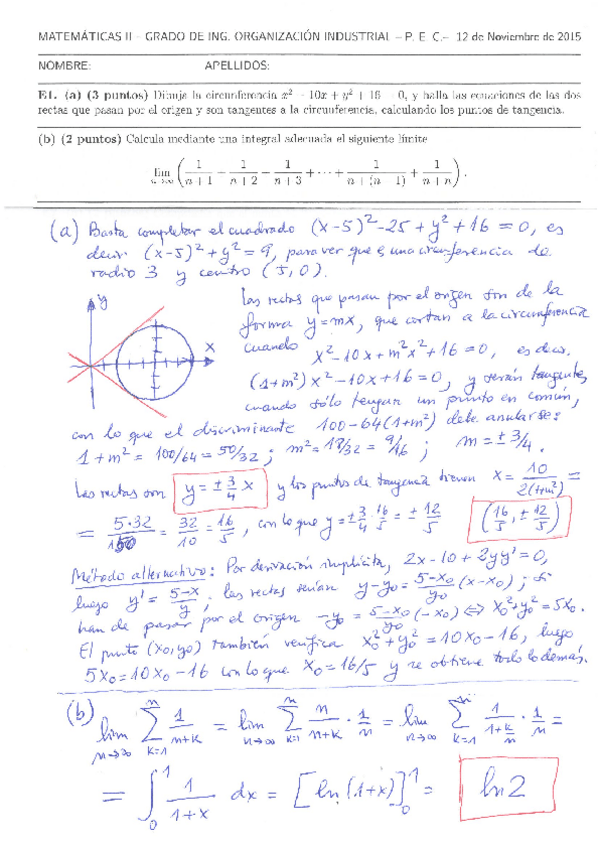 MATEMÁTICAS II – GRADO DE ING. ORGANIZACIÓN INDUSTRIAL – P. E. C.– 12 de Noviembre de 2015
NOMBRE: APELLIDOS:
E1. (a) (3 puntos) Dibuja la circunferencia x² − 10x + y² + 16 = 0, y halla las ecuaciones de las dos
rectas que pasan por el origen y son tangentes a la circunferencia, calculando los puntos de tangencia.
(b) (2 puntos) Calcula mediante una integral adecuada el siguiente límite
lim n→∞ (1/(n+1) + 1/(n+2) + 1/(n+3) + ··· + 1/(n+(n−1)) + 1/(n+n)).
(a) Basta completar el cuadrado (x-5)² -25 + y² + 16 = 0, es
decir (x-5)² + y² = 9, para ver que es una circunferencia de
radio 3 y centro (5,0).
y
x
Las rectas que pasan por el origen son de la
forma y=mx, que cortan a la circunferencia
cuando x² -10x + m²x² + 16 = 0, es decir.
(1+m²)x² -10x + 16 = 0, y serán tangentes
cuando sólo tengan un punto en común,
con lo que el discriminante 100 - 64(1+m²) debe anularse:
1+m² = 100/64 = 50/32; m² = 18/32 = 9/16; m = ± 3/4.
Las rectas son y = ± 3/4 x y los puntos de tangencia tienen x = 10/2(1+m²) =
= 5·32/50 = 32/10 = 16/5, con lo que y = ± 3/4 · 16/5 = ± 12/5 (16/5, ± 12/5)
Método alternativo: Por derivación implícita, 2x-10+2yy' = 0,
luego y' = 5-x/y; las rectas serían y-y₀ = 5-x₀/y₀ (x-x₀); si
han de pasar por el origen -y₀ = 5-x₀/y₀ (-x₀) ⟺ x₀²+y₀² = 5x₀.
El punto (x₀,y₀) también verifica x₀²+y₀² = 10x₀-16, luego
5x₀ = 10x₀ -16 con lo que x₀ = 16/5 y se obtiene todo lo demás.
(b) lim n→∞ Σ k=1 n 1/n+k = lim n→∞ Σ k=1 n n/n+k · 1/n = lim n→∞ Σ k=1 n 1/1+k/n · 1/n =
= ∫₀¹ 1/1+x dx = [ln(1+x)]₀¹ = ln 2